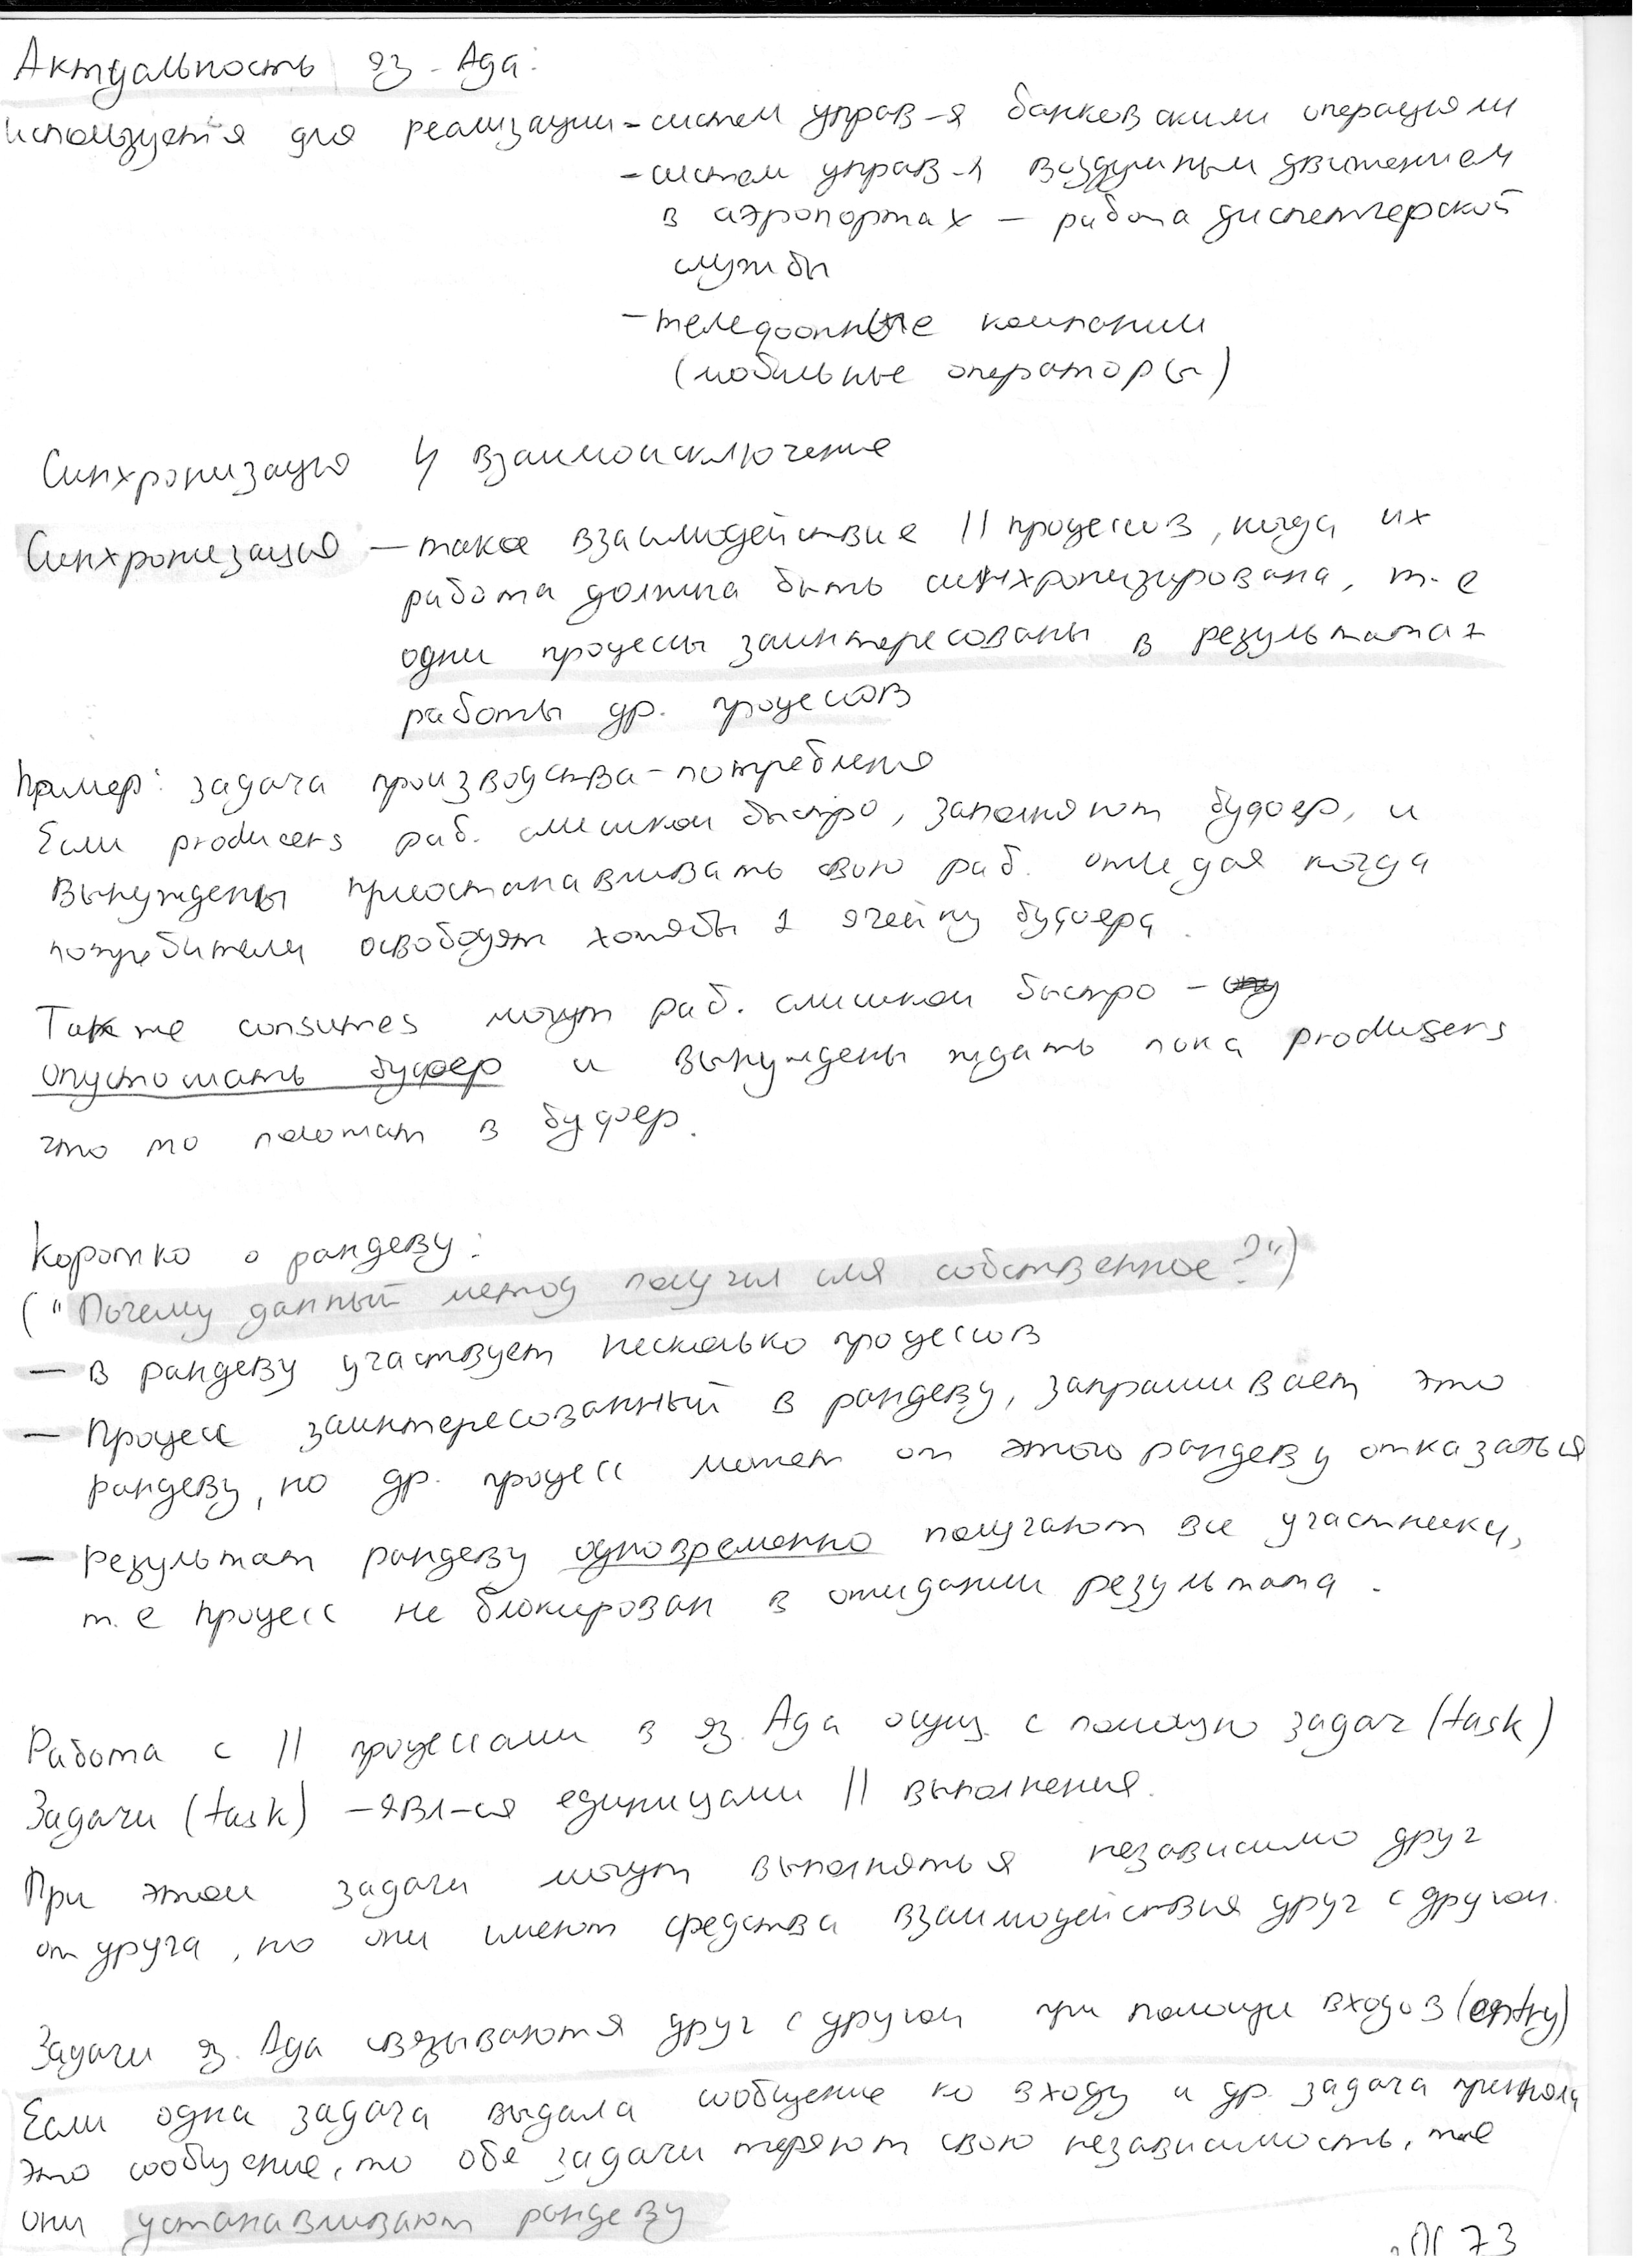 Актуальность яз. Ада:
используется для реализации - систем управ-я банковскими операциями
- систем управ-я воздушным движением
в аэропортах – работа диспетчерской
службы
- телефонные компании
(мобильные операторы)
Синхронизация и взаимоисключение
Синхронизация – такое взаимодействие || процессов, когда их
работа должна быть синхронизирована, т.е
одни процессы заинтересованы в результатах
работы др. процессов
Пример: задача производства-потребления
Если producers раб. слишком быстро, заполняют буфер, и
вынуждены приостанавливать свою раб. ожидая когда
потребители освободят хотябы 1 ячейку буфера.
Также consumes могут раб. слишком быстро –
опустошать буфер и вынуждены ждать пока producers
что то положат в буфер.
Коротко о рандеву:
("Почему данный метод получил имя собственное?")
– в рандеву участвует несколько процессов
– Процесс заинтересованный в рандеву, запрашивает это
рандеву, но др. процесс может от этого рандеву отказаться
– результат рандеву одновременно получают все участники,
т.е процесс не блокирован в ожидании результата.
Работа с || процессами в яз. Ада осущ. с помощью задач (task)
Задачи (task) – явл-ся единицами || выполнения.
При этом задачи могут выполняться независимо друг
от друга, но они имеют средства взаимодействия друг с другом.
Задачи яз. Ада связываются друг с другом при помощи входов (entry)
Если одна задача выдала сообщение ко входу и др. задача приняла
это сообщение, то обе задачи теряют свою независимость, т.е
они устанавливают рандеву
73